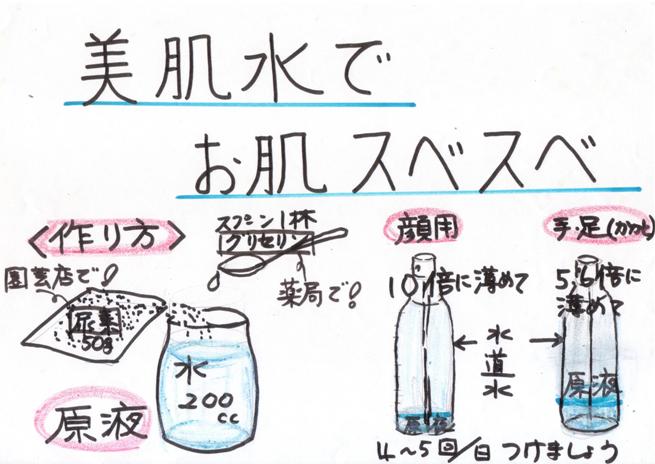 美肌水で
お肌スベスベ
<作り方>
園芸店で!
尿素
50g
スプーン1杯
グリセリン
薬局で!
水
200
cc
原液
顔用
10倍に薄めて
原液
水
道
水
手足(かかと)
5,6倍に
薄めて
原液
4〜5回/日 つけましょう